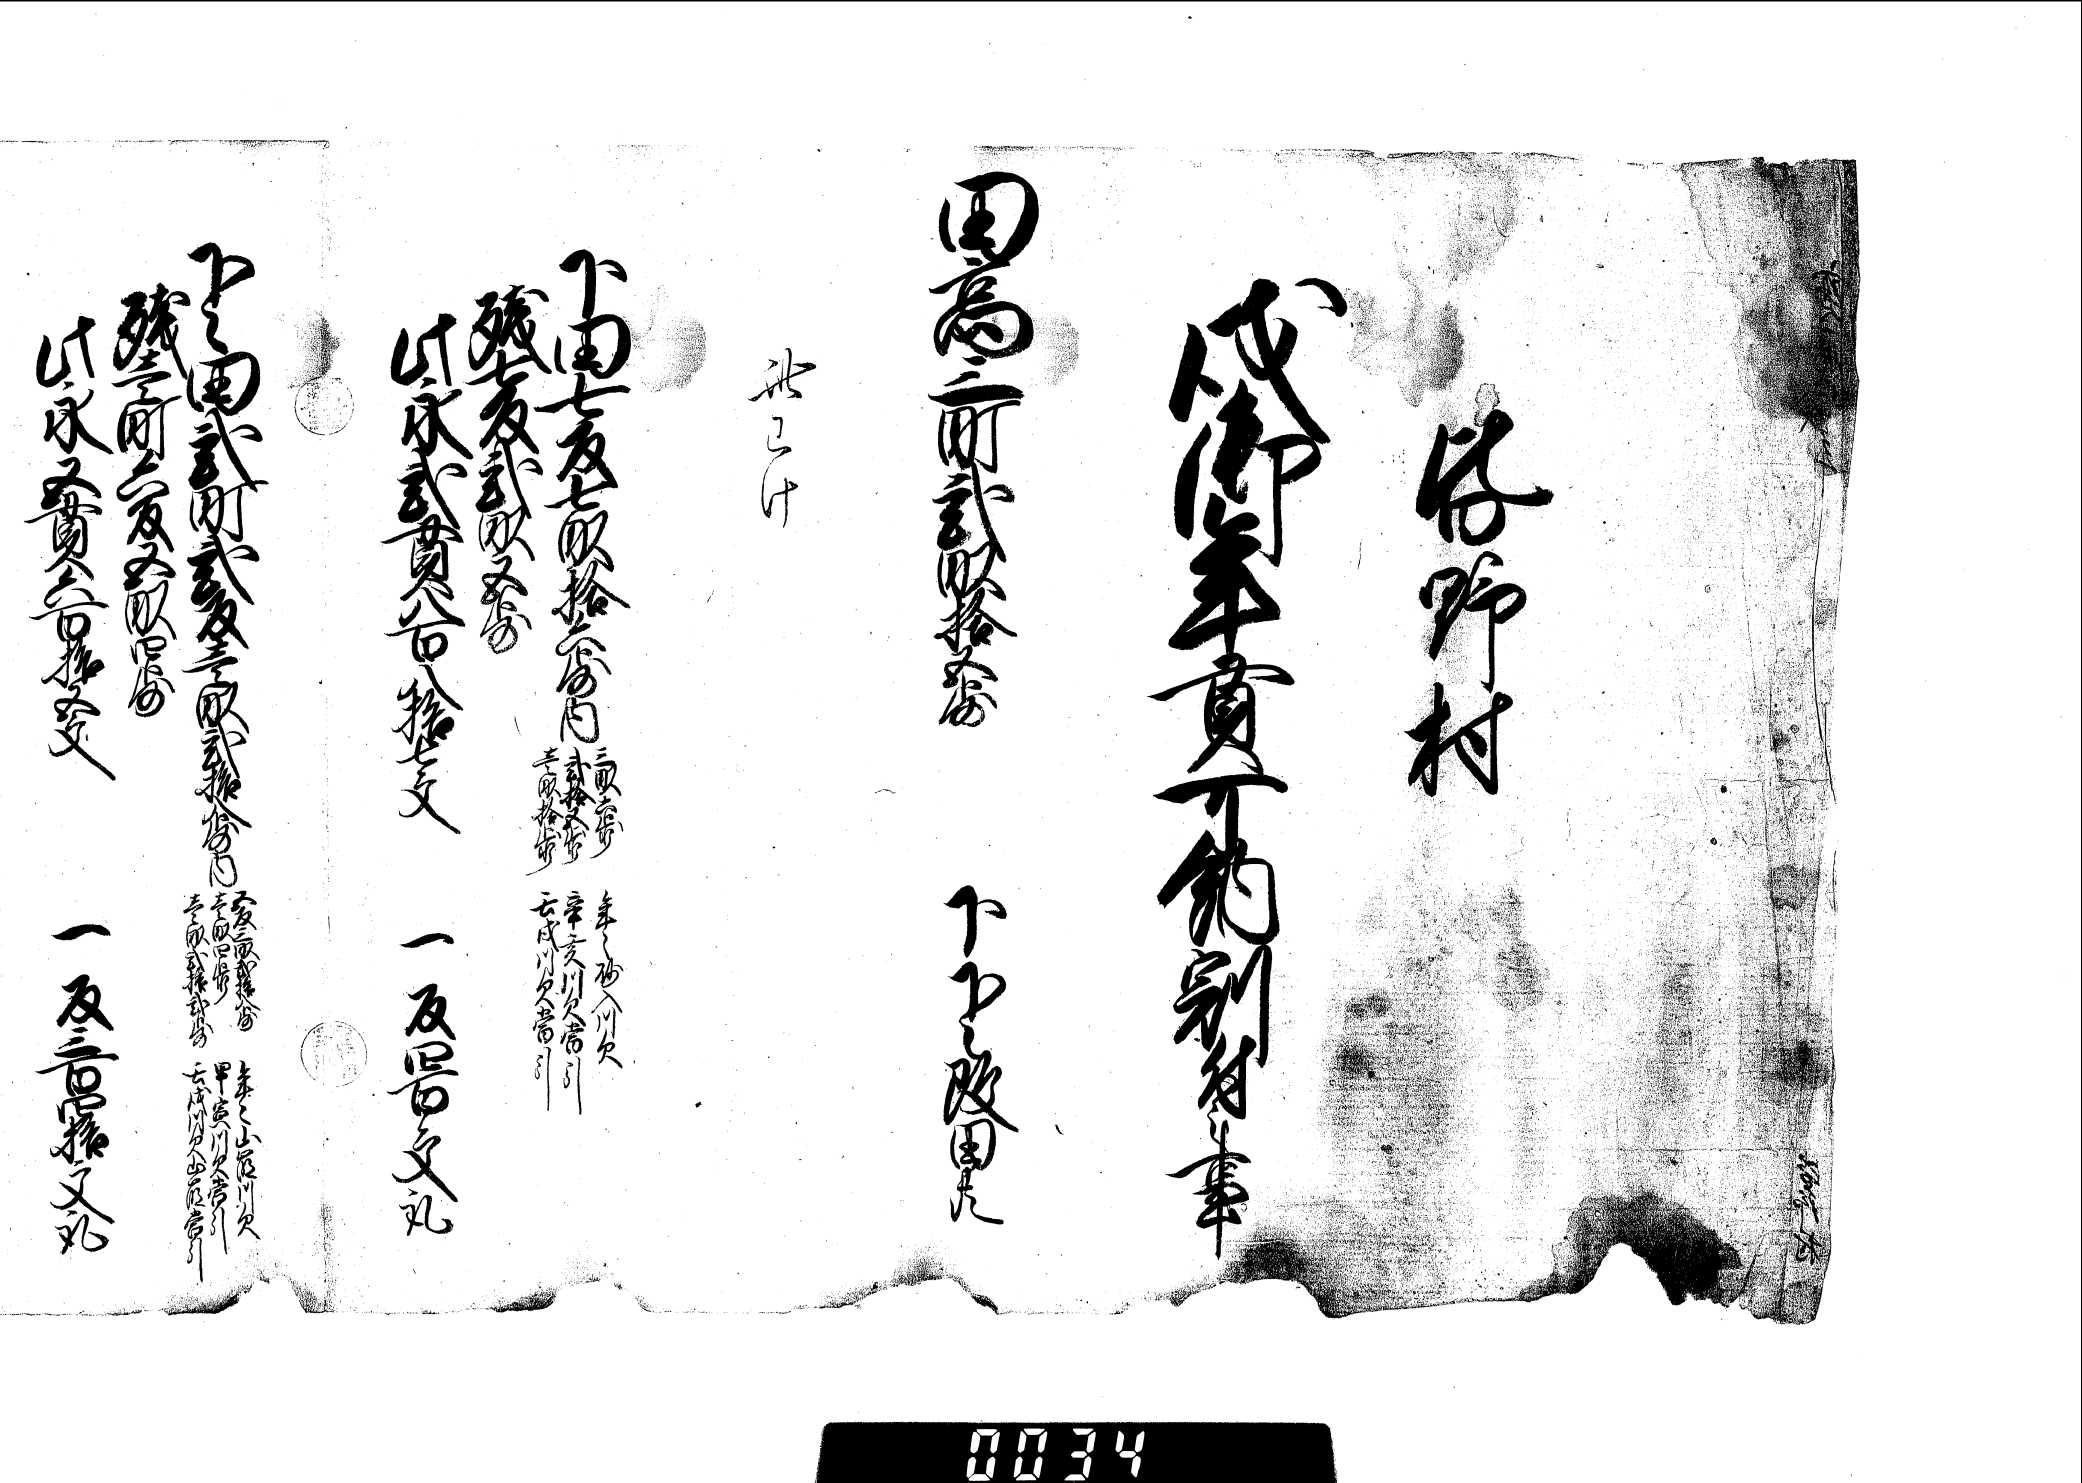 皆野村
戌御年貢可納割付之事
田高三町弐畝拾五歩 下下々段田共
此わけ
下田七反七畝拾六歩内
三畝六歩 年々砂入川欠
弐拾五歩 辛亥川欠当引
壱畝拾歩 壬戌川欠当引
残七反弐畝五歩
此永弐貫八百八拾七文 一反四百文取
下々田弐町弐反壱畝弐拾八歩内
五反三畝弐拾八歩 年々山崩川欠
壱畝四歩 甲寅川欠当引
壱畝弐拾弐歩 壬戌川欠山崩当引
残壱町六反五畝四歩
此永五貫六百拾五文 一反三百四拾文取
0034